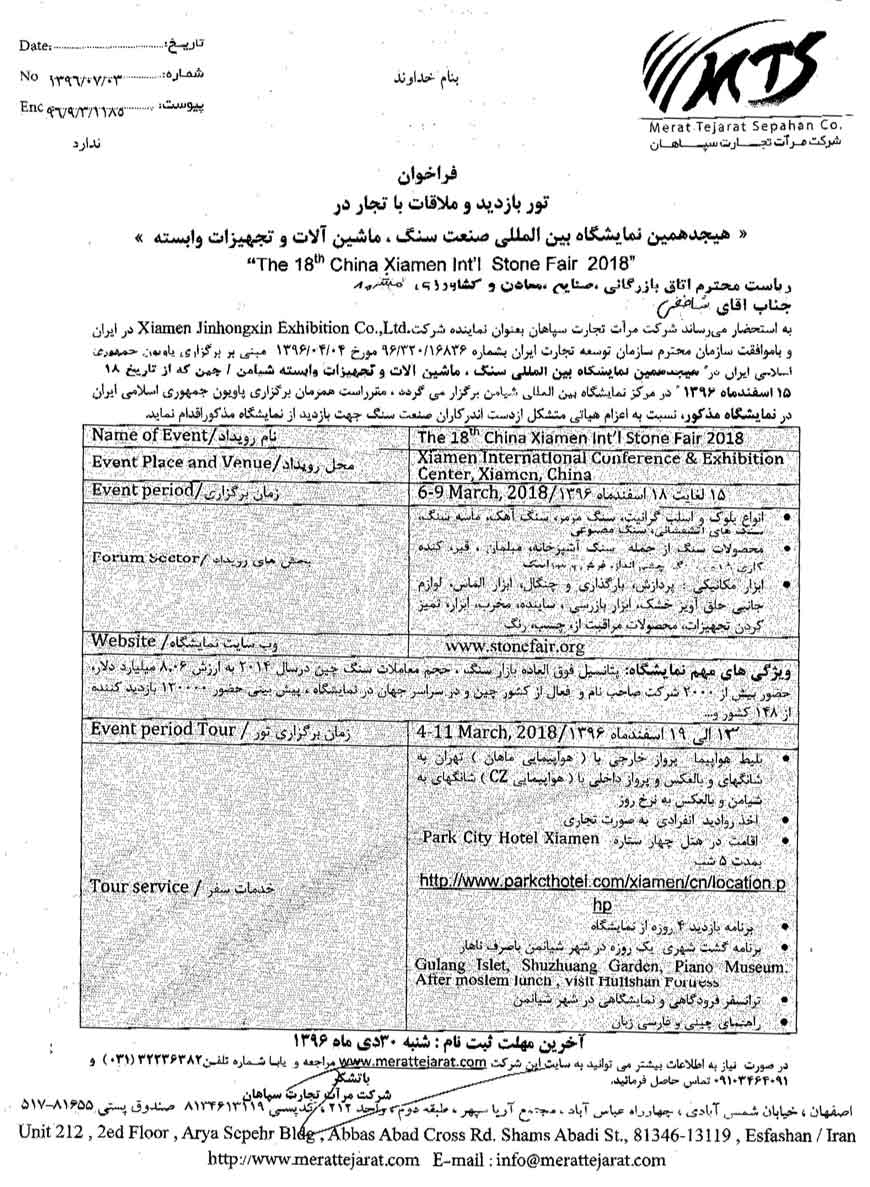 Date: تاریخ:
No ۱۳۹۶/۰۷/۰۳ شماره:
Enc ۹۶/۹/۳/۱۱۸۵ پیوست:
ندارد
بنام خداوند
MTS
Merat Tejarat Sepahan Co.
شرکت مرآت تجارت سپاهان
فراخوان
تور بازدید و ملاقات با تجار در
« هیجدهمین نمایشگاه بین المللی صنعت سنگ ، ماشین آلات و تجهیزات وابسته »
“The 18th China Xiamen Int'l Stone Fair 2018”
ریاست محترم اتاق بازرگانی ،صنایع ،معادن و کشاورزی
جناب آقای
به استحضار می‌رساند شرکت مرآت تجارت سپاهان بعنوان نماینده شرکت.Xiamen Jinhongxin Exhibition Co.,Ltd در ایران
و باموافقت سازمان محترم سازمان توسعه تجارت ایران بشماره ۹۶/۳۲۰/۱۶۸۳۶ مورخ ۱۳۹۶/۰۴/۰۴ مبنی بر برگزاری پاویون جمهوری
اسلامی ایران در" هیجدهمین نمایشگاه بین المللی سنگ ، ماشین آلات و تجهیزات وابسته شیامن / چین که از تاریخ ۱۸
۱۵ اسفندماه ۱۳۹۶" در مرکز نمایشگاه بین المللی شیامن برگزار می گردد ، مقرراست همزمان برگزاری پاویون جمهوری اسلامی ایران
در نمایشگاه مذکور، نسبت به اعزام هیاتی متشکل ازدست اندرکاران صنعت سنگ جهت بازدید از نمایشگاه مذکوراقدام نماید.
Name of Event/نام رویداد The 18th China Xiamen Int'l Stone Fair 2018
Event Place and Venue/محل رویداد Xiamen International Conference & Exhibition
Center, Xiamen, China
Event period/زمان برگزاری 6-9 March, 2018/۱۵ لغایت ۱۸ اسفندماه ۱۳۹۶
Forum Sector/بخش های رویداد
• انواع بلوک و اسلب گرانیت، سنگ مرمر، سنگ آهک، ماسه سنگ،
سنگ های آتشفشانی، سنگ مصنوعی
• محصولات سنگ از جمله سنگ آشپزخانه، مبلمان ، قبر، کنده
کاری چشم انداز، فرش و موزاییک
• ابزار مکانیکی : پردازش، بارگذاری و چنگال، ابزار الماس، لوازم
جانبی حلق آویز خشک، ابزار بازرسی ، ساینده، مخرب، ابزار، تمیز
کردن تجهیزات، محصولات مراقبت از، چسب، رنگ
Website /وب سایت نمایشگاه www.stonefair.org
ویژگی های مهم نمایشگاه: پتانسیل فوق العاده بازار سنگ ، حجم معاملات سنگ چین درسال ۲۰۱۴ به ارزش ۸.۰۶ میلیارد دلار،
حضور بیش از ۲۰۰۰ شرکت صاحب نام و فعال از کشور چین و در سراسر جهان در نمایشگاه ، پیش بینی حضور ۱۲۰۰۰۰ بازدید کننده
از ۱۴۸ کشور و...
Event period Tour / زمان برگزاری تور 4-11 March, 2018/۱۳ الی ۱۹ اسفندماه ۱۳۹۶
Tour service / خدمات سفر
• بلیط هواپیما پرواز خارجی با ( هواپیمایی ماهان ) تهران به
شانگهای و بالعکس و پرواز داخلی با ( هواپیمایی CZ ) شانگهای به
شیامن و بالعکس به نرخ روز
• اخذ روادید انفرادی به صورت تجاری
• اقامت در هتل چهار ستاره Park City Hotel Xiamen
بمدت ۵ شب
http://www.parkcthotel.com/xiamen/cn/location.p
hp
• برنامه بازدید ۴ روزه از نمایشگاه
• برنامه گشت شهری یک روزه در شهر شیانمن باصرف ناهار
Gulang Islet, Shuzhuang Garden, Piano Museum.
After moslem lunch , visit Hulishan Fortress
• ترانسفر فرودگاهی و نمایشگاهی در شهر شیانمن
• راهنمای چینی و فارسی زبان
آخرین مهلت ثبت نام : شنبه ۳۰دی ماه ۱۳۹۶
در صورت نیاز به اطلاعات بیشتر می توانید به سایت این شرکت www.merattejarat.com مراجعه و یابا شماره تلفن۳۲۲۳۶۳۸۲ (۰۳۱) و
۰۹۱۰۳۴۶۴۰۹۱ تماس حاصل فرمائید.
باتشکر
شرکت مرآت تجارت سپاهان
اصفهان ، خیابان شمس آبادی ، چهارراه عباس آباد ، مجتمع آریا سپهر ، طبقه دوم ، واحد ۲۱۲ ، کدپستی ۸۱۳۴۶۱۳۱۱۹ صندوق پستی ۸۱۶۵۵-۵۱۷
Unit 212 , 2ed Floor , Arya Sepehr Bldg , Abbas Abad Cross Rd. Shams Abadi St., 81346-13119 , Esfashan / Iran
http://www.merattejarat.com E-mail : info@merattejarat.com